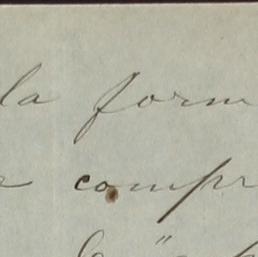 la form
compr